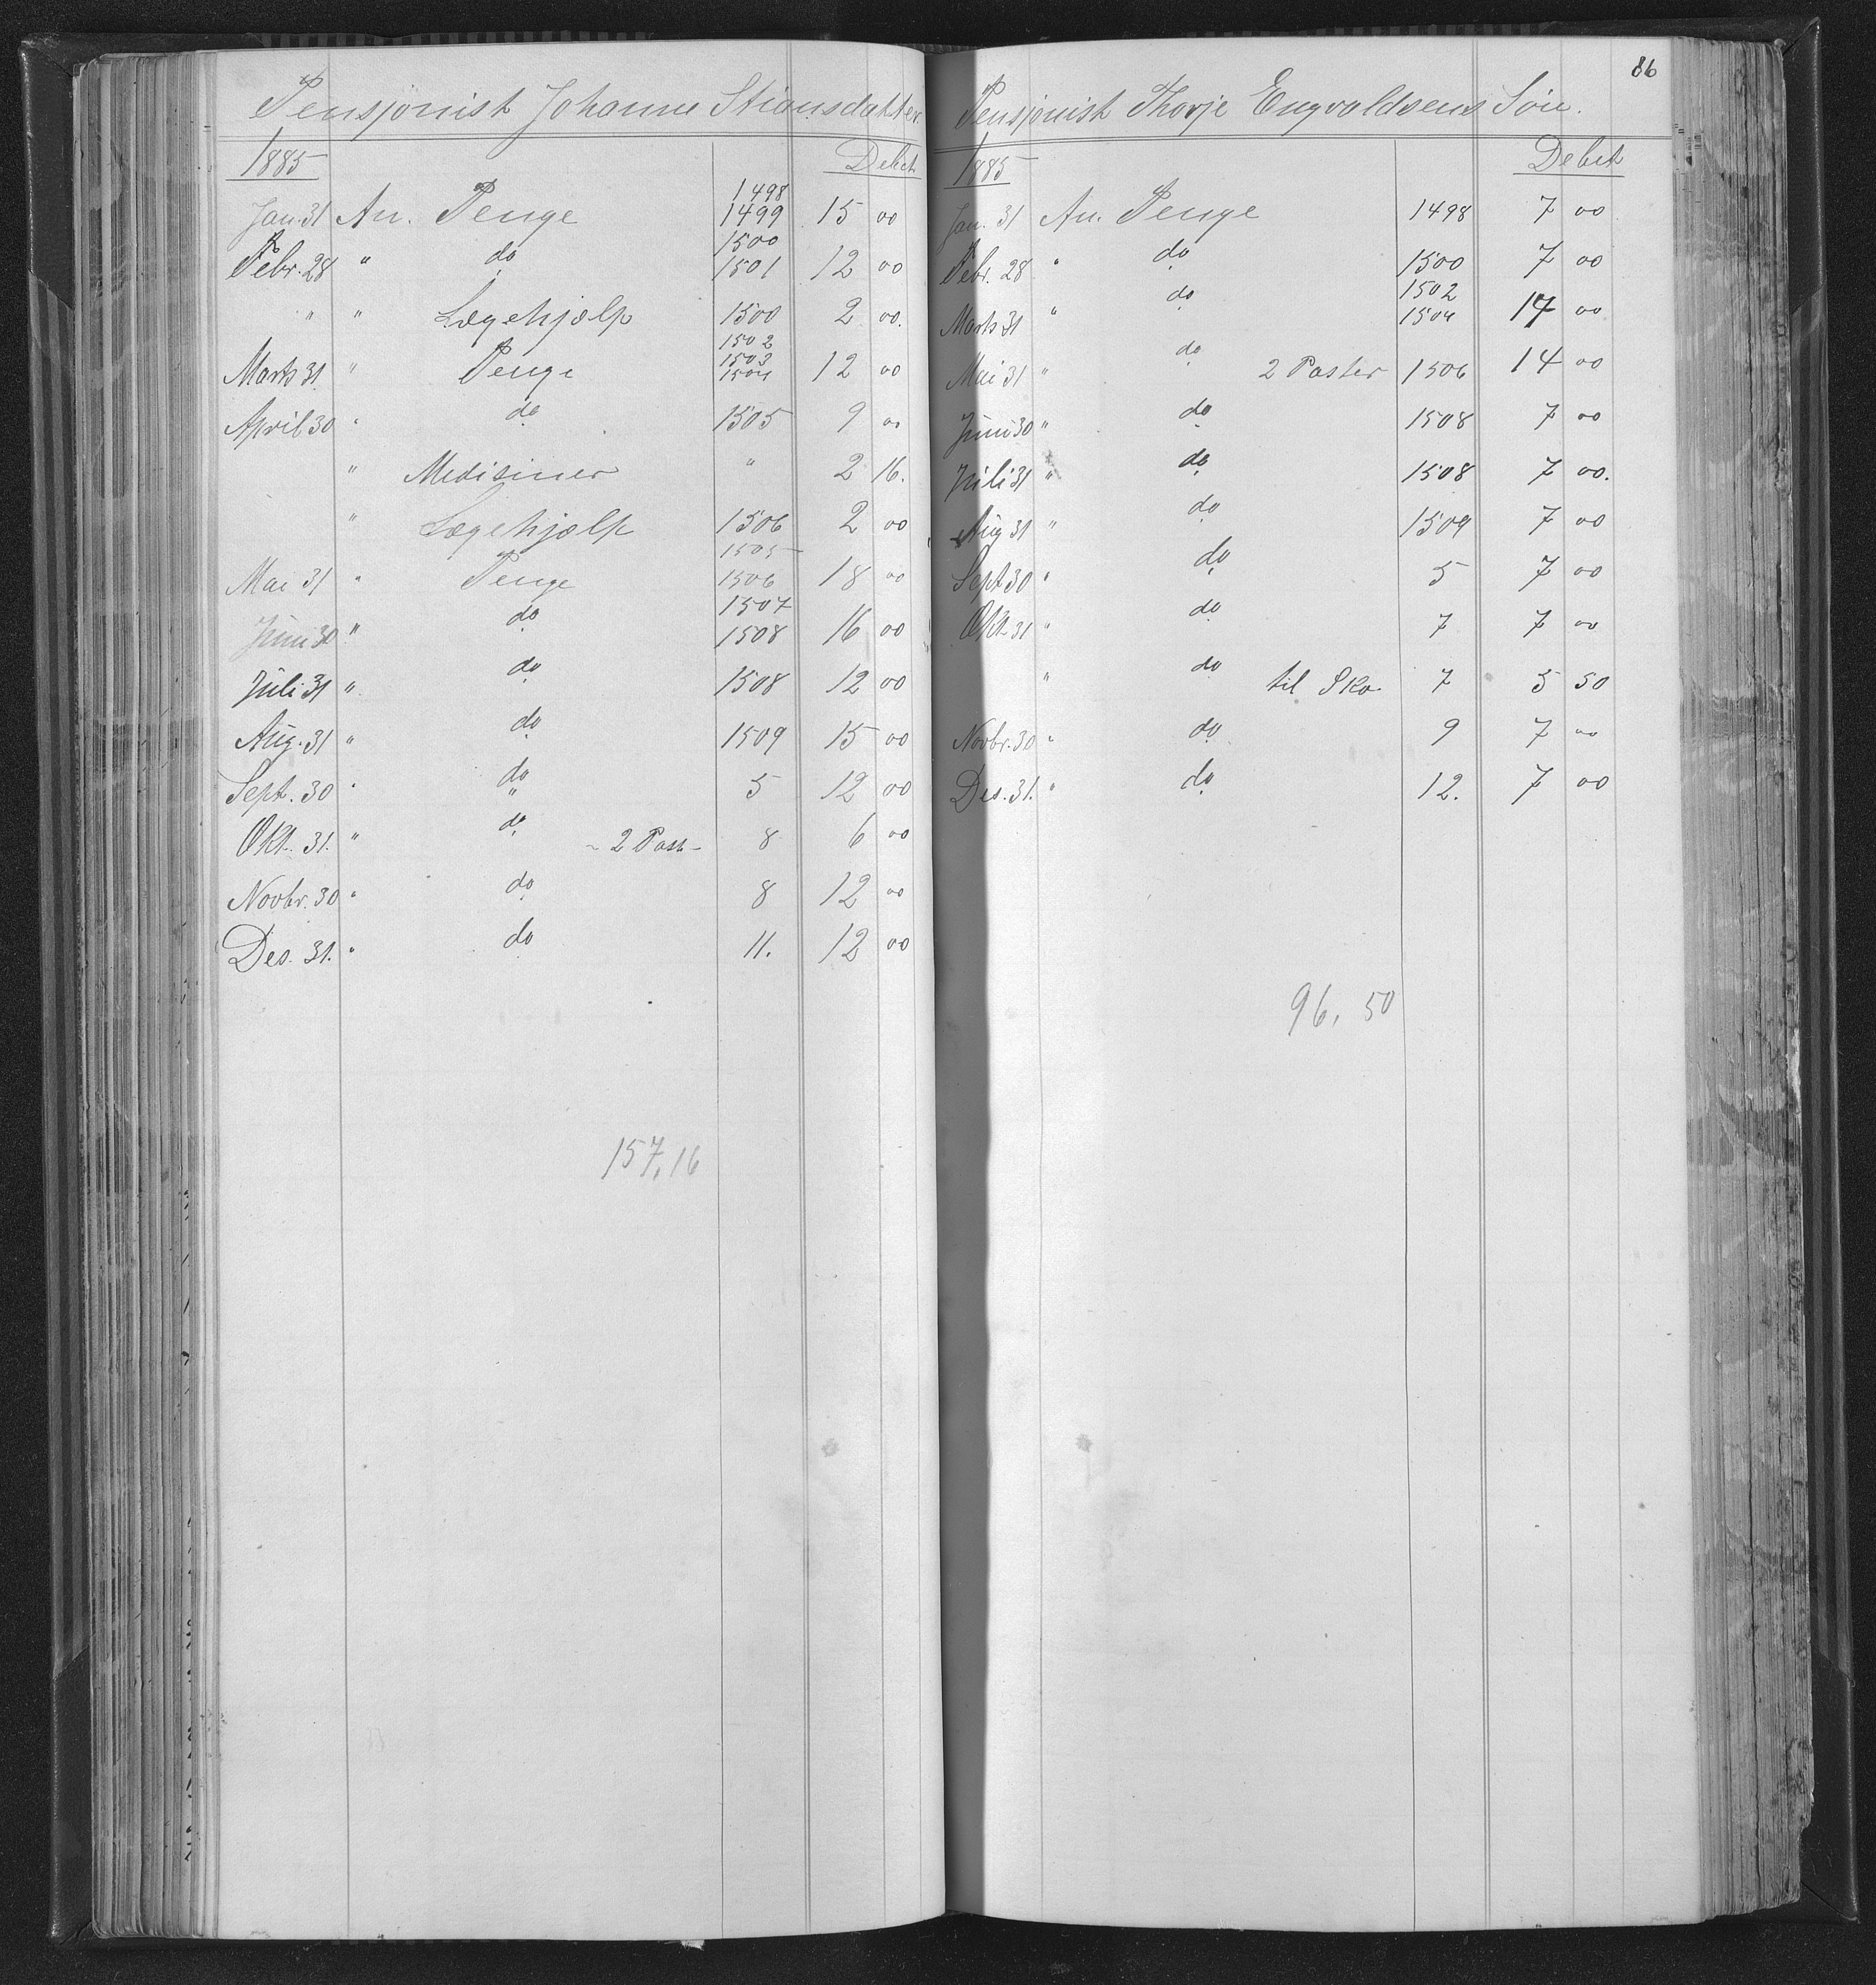 Pensjonist Johanne Stiansdatter
1885 Debet
1498
Jan. 31 An. Penge 1499 15 00
1500
Febr. 28 " do 1501 12 00
" " Lægehjælp 1500 2 00.
1502
1503
Marts 31 " Penge 1504 12 00
April 30 " do 1505 9 00
" Medisiner " 2 16.
" Lægehjælp 1506 2 00
1505
Mai 31 " Penge 1506 18 00
1507
Juni 30 " do 1508 16 00
Juli 31 " do 1508 12 00
Aug. 31 " do 1509 15 00
Sept. 30 " do 5 12 00
Okt. 31. " do - 2 Post - 8 6 00
Novbr. 30 " do 8 12 00
Des. 31. " do 11. 12 00
157,16
86
Pensjonist Thorje Engvoldsens Søn.
1885 Debet
Jan. 31 An. Penge 1498 7 00
Febr. 28 " do 1500 7 00
1502
Marts 31 " do 1504 14 00
Mai 31 " do 2 Poster 1506 14 00
Juni 30 " do 1508 7 00
Juli 31 " do 1508 7 00.
Aug 31 " do 1509 7 00
Sept 30 " do 5 7 00
Okt. 31 " do 7 7 00
" do til Sko. 7 5 50
Novbr. 30 " do 9 7 00
Des. 31. " do 12. 7 00
96,50